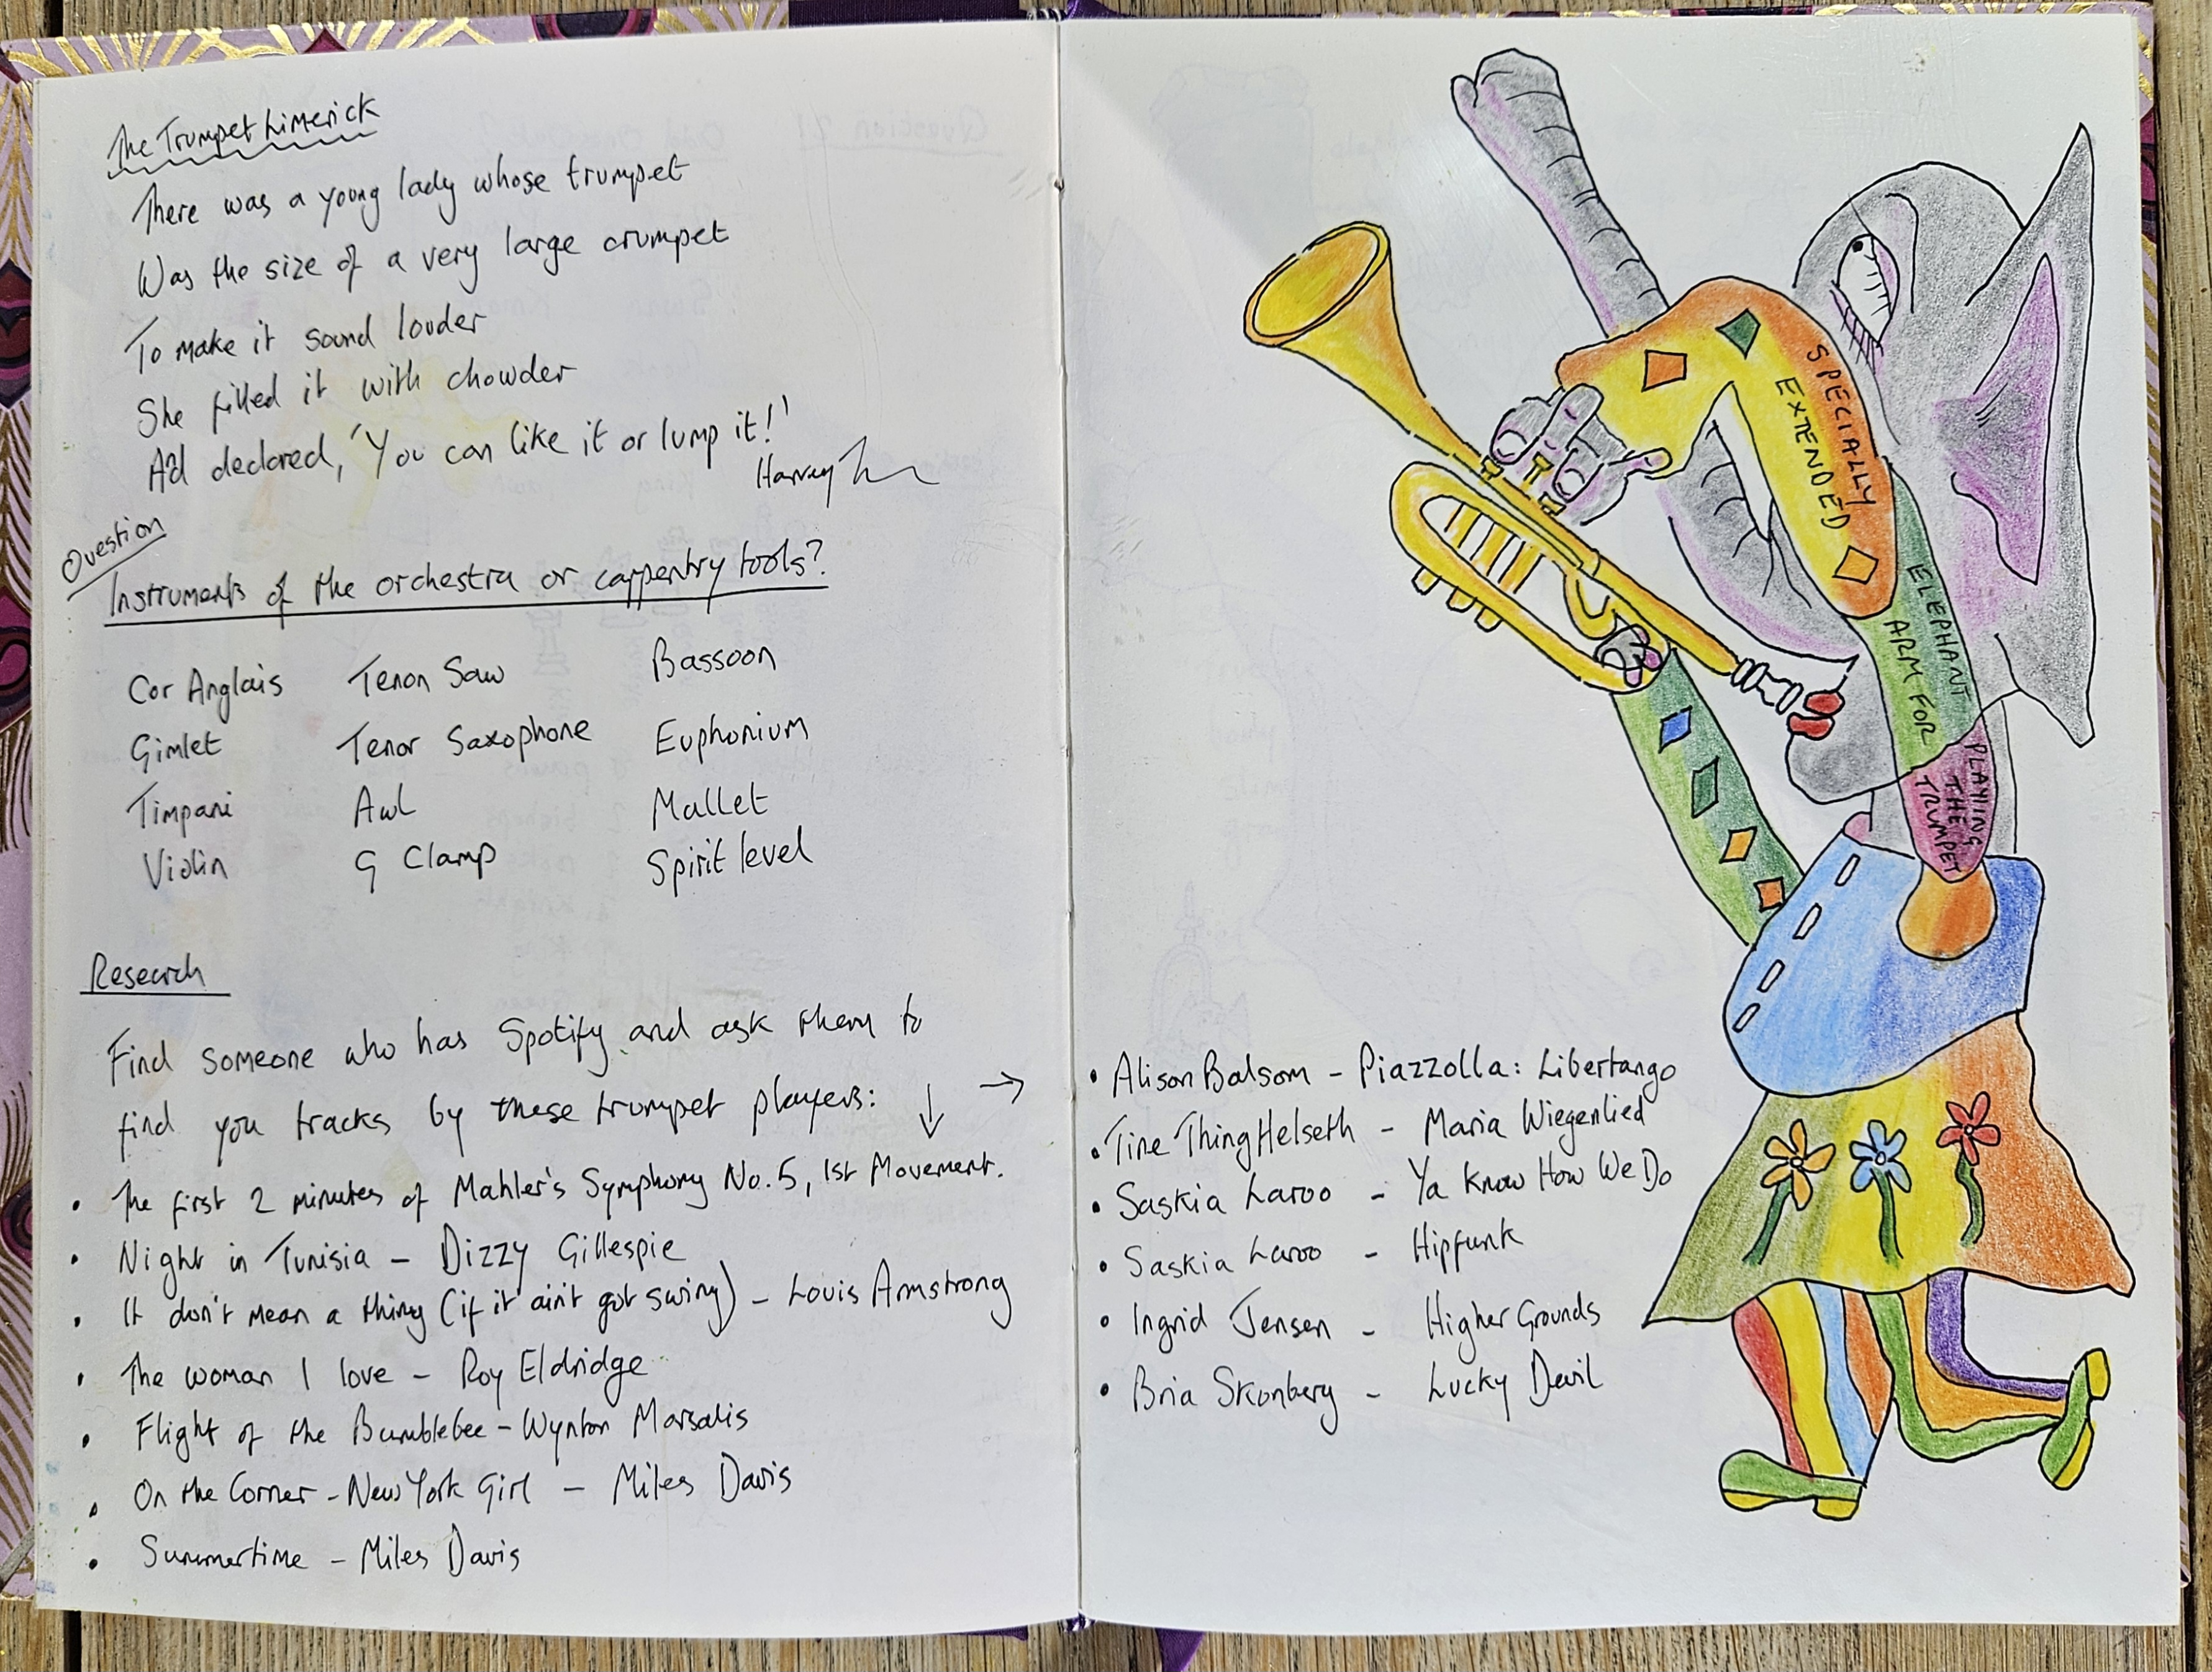 The Trumpet Limerick
There was a young lady whose trumpet
Was the size of a very large crumpet
To make it sound louder
She filled it with chowder
And declared, 'You can like it or lump it!'
Harvey
Question
Instruments of the orchestra or carpentry tools?
Cor Anglais Tenon Saw Bassoon
Gimlet Tenor Saxophone Euphonium
Timpani Awl Mallet
Violin G Clamp Spirit level
Research
Find someone who has Spotify and ask them to
find you tracks by these trumpet players: ↓ →
• The first 2 minutes of Mahler's Symphony No. 5, 1st Movement.
• Night in Tunisia – Dizzy Gillespie
• It don't mean a thing (if it ain't got swing) – Louis Armstrong
• The woman I love – Roy Eldridge
• Flight of the Bumblebee – Wynton Marsalis
• On the Corner – New York Girl – Miles Davis
• Summertime – Miles Davis
SPECIALLY
EXTENDED
ELEPHANT
ARM FOR
PLAYING
THE
TRUMPET
• Alison Balsom – Piazzolla: Libertango
• Tine Thing Helseth – Maria Wiegenlied
• Saskia Laroo – Ya Know How We Do
• Saskia Laroo – Hipfunk
• Ingrid Jensen – Higher Grounds
• Bria Skonberg – Lucky Devil